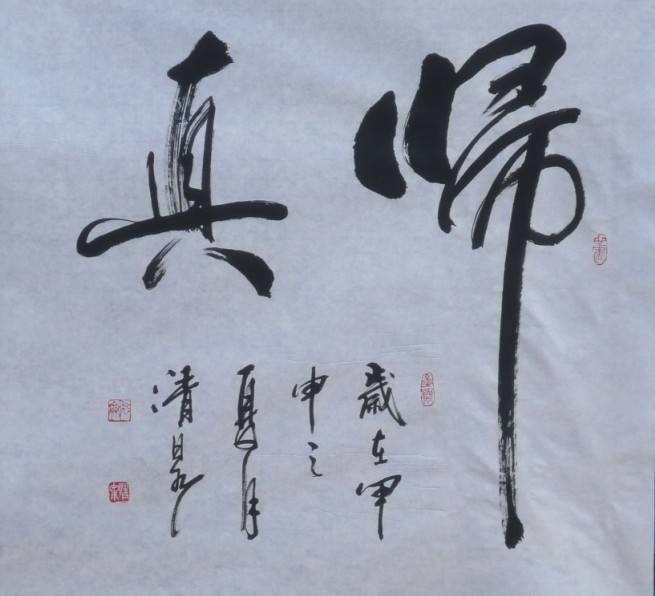 帰真
歲在甲
申之
夏月
清